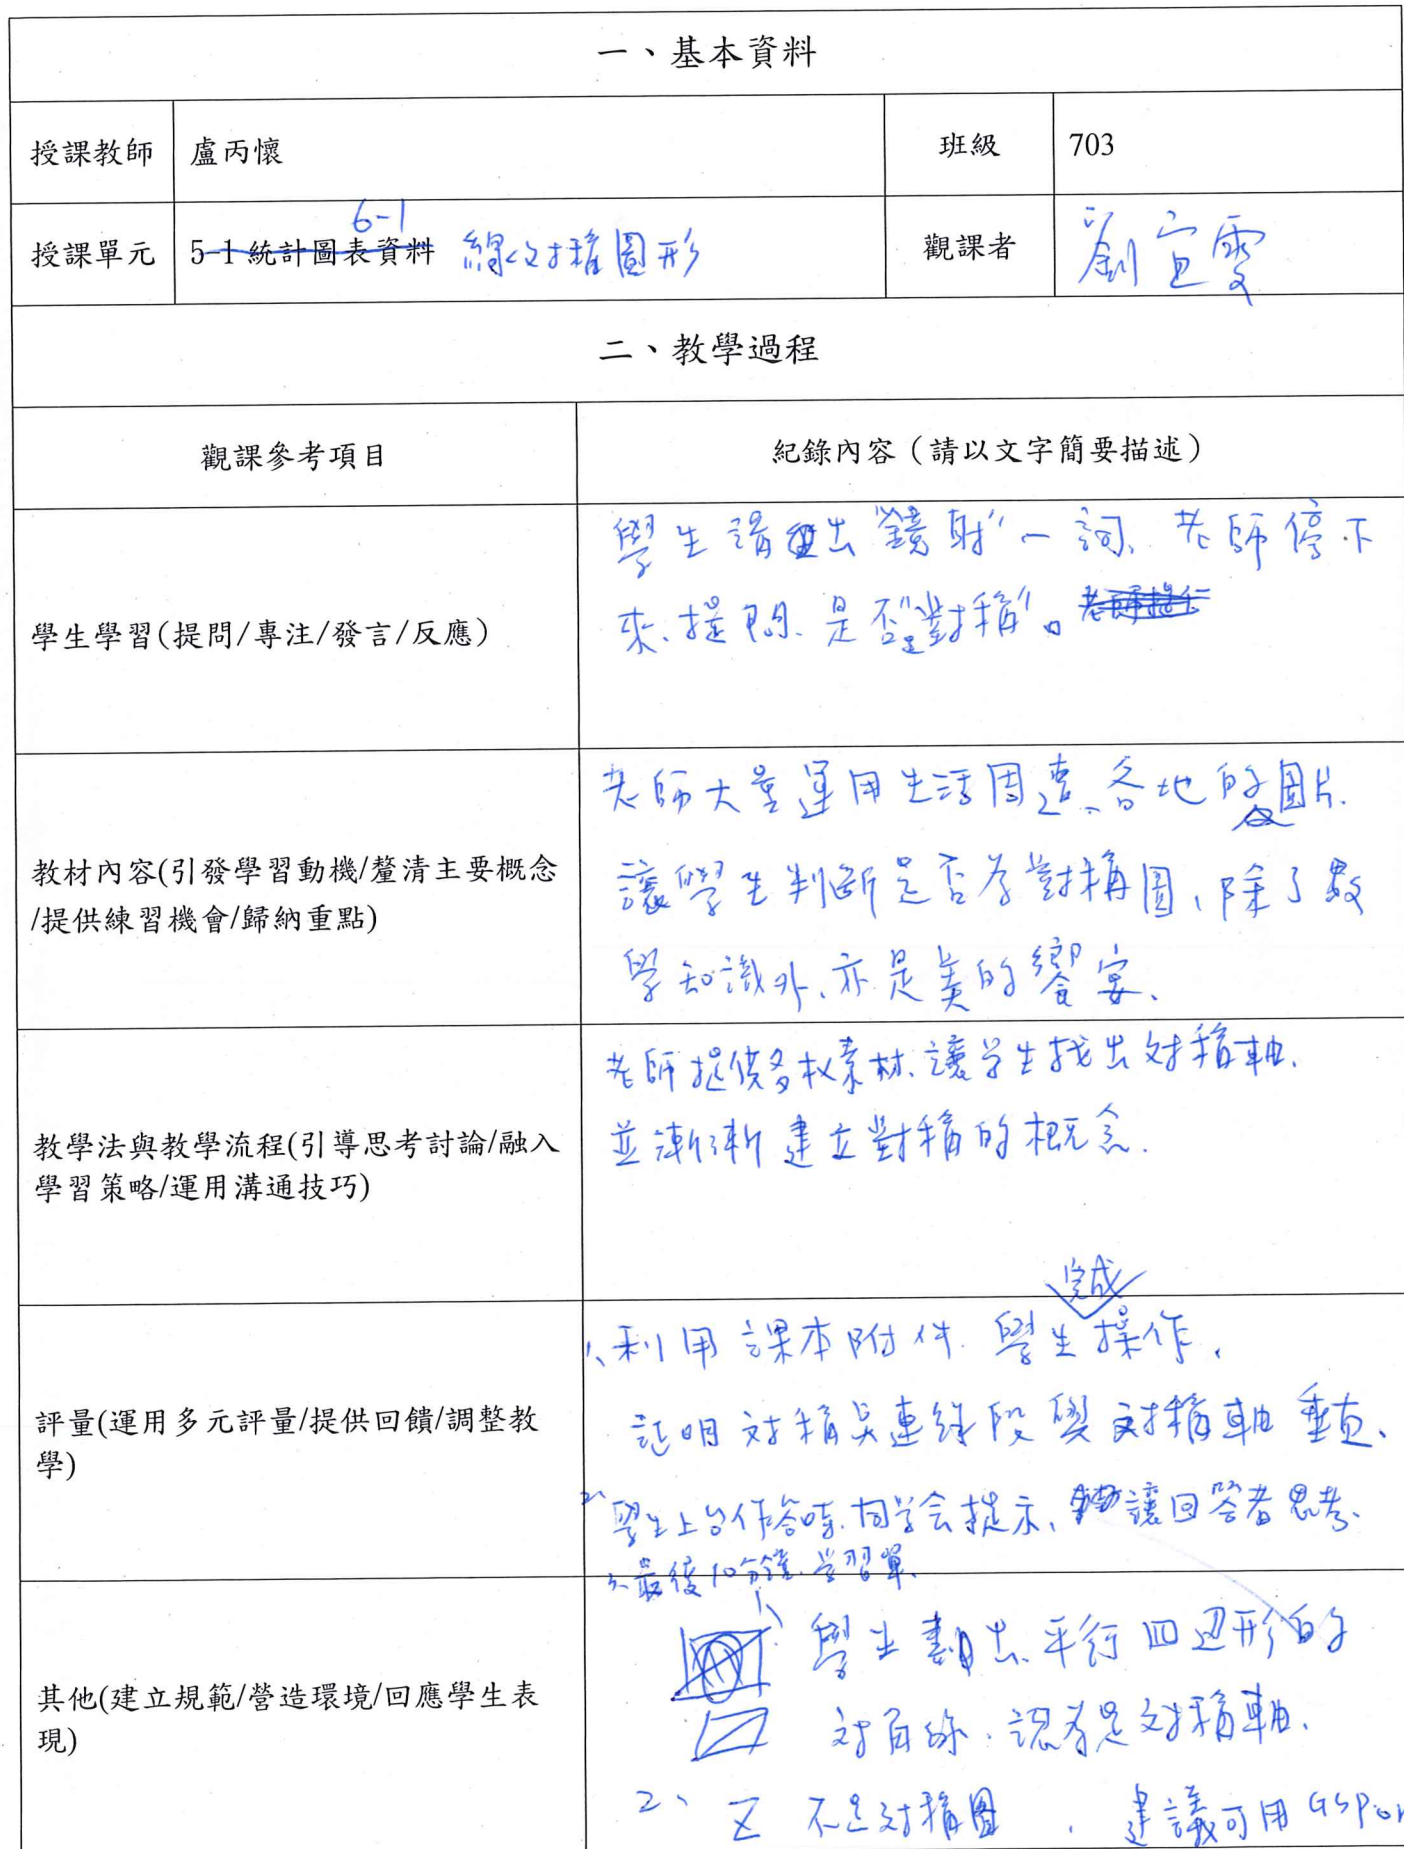 一、基本資料
授課教師 盧丙懷 班級 703
6-1
授課單元 5-1 統計圖表資料 線对稱圖形 觀課者 劉宜雯
二、教學過程
觀課參考項目 紀錄內容（請以文字簡要描述）
學生學習(提問/專注/發言/反應)
學生講出"鏡射"一詞、老師停下
來、提問、是否"對稱"。
教材內容(引發學習動機/釐清主要概念
/提供練習機會/歸納重點)
老師大量運用生活周遭、各地的圖片、
讓學生判斷是否為對稱圖，除了數
學知識外、亦是美的饗宴、
教學法與教學流程(引導思考討論/融入
學習策略/運用溝通技巧)
老師提供多秋素材、讓学生找出对稱軸、
並漸漸建立對稱的概念.
評量(運用多元評量/提供回饋/調整教
學)
完成
1、利用課本附件 學生操作，
証明对稱点連線段與对稱軸垂直、
2、學生上台作答時、同学会提示、讓回答者思考、
3、最後10分鐘、学習單、
其他(建立規範/營造環境/回應學生表
現)
1、學生劃出平行四边形的
对角線、認為是对稱軸、
2、Z 不是对稱圖 ，建議可用GSP or